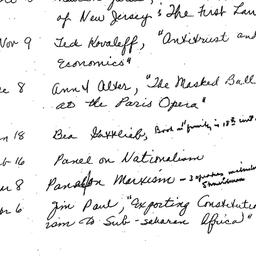 of New Jersey & The First Law
Nov 9 Ted Kovaleff, "Antitrust and
Economics"
c 8 Ann J Alter, "The Masked Ball
at the Paris Opera"
n 18 Bea Gottlieb, Book on family in 18th
b 16 Panel on Nationalism
r 8 Panel on Marxism - 3 speakers
r 6 Jim Paul, "Exporting Constitutio
ism to Sub-saharan Africa"